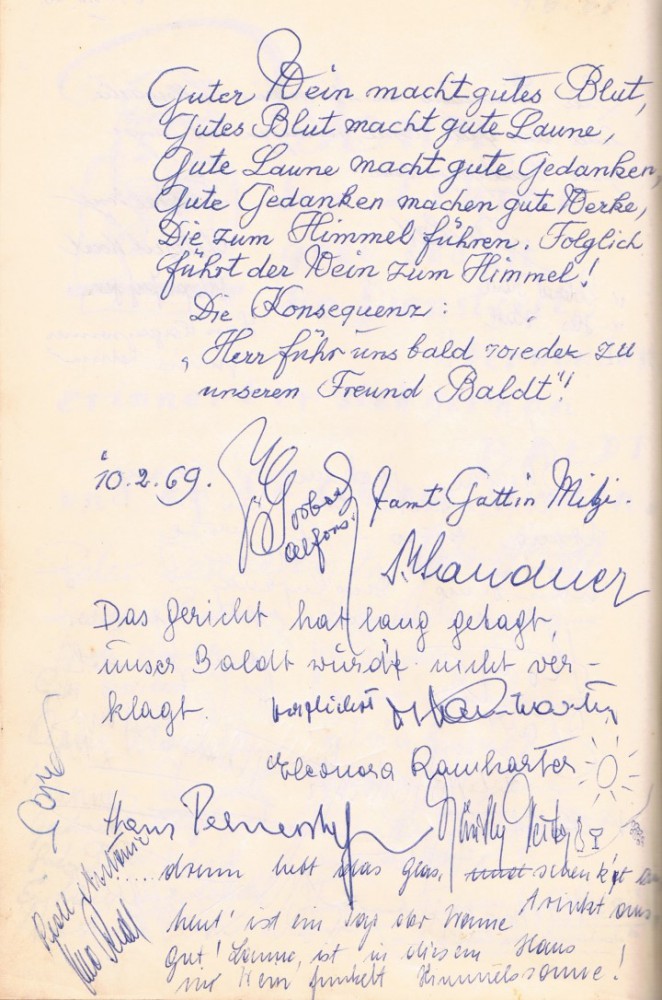 Guter Wein macht gutes Blut,
Gutes Blut macht gute Laune,
Gute Laune macht gute Gedanken,
Gute Gedanken machen gute Werke,
Die zum Himmel führen. Folglich
führt der Wein zum Himmel!
Die Konsequenz:
"Herr führ uns bald wieder zu
unseren Freund Baldt"!
10.2.69.
Gorbach
Alfons.
samt Gattin Mitzi.
Das Gericht hat lang getagt,
unser Baldt wurde nicht ver-
klagt.
herzlichst
Eleonora Ramharter
Hans
.... drum hebt das Glas, und schenkt
trinkt aus
heut' ist ein Tag der Wonne
gut' Laune, ist in diesem Haus
im Wein funkelt Himmelssonne!